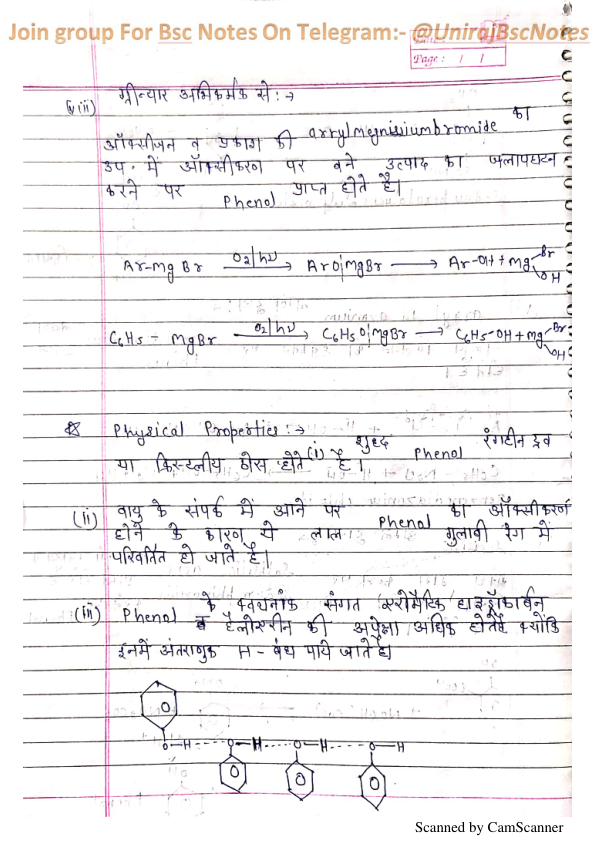 Join group For Bsc Notes On Telegram:- @UnirajBscNotes
Page: / /
(viii) ग्रीन्यार अभिकर्मक से :→
ऑक्सीजन व प्रकाश की arrylmegnissiumbromide का
उप. में ऑक्सीकरण पर बने उत्पाद का जलापघटन
करने पर Phenol प्राप्त होते है।
Ar-MgBr O2/hν → ArO¦MgBr → Ar-OH + Mg Br OH
C6H5 - MgBr O2/hν → C6H5O¦MgBr → C6H5-OH + Mg Br OH
Physical Properties :→
(i) शुद्ध Phenol रंगहीन द्रव
या क्रिस्टलीय ठोस होते है।
(ii) वायु के संपर्क में आने पर Phenol का ऑक्सीकरण
होने के कारण ये लाल गुलाबी रंग में
परिवर्तित हो जाते है।
(iii) Phenol के क्वथनांक संगत एरोमैटिक हाइड्रोकार्बन
व हैलोएरीन की अपेक्षा अधिक होते है क्योंकि
इनमें अंतराणुक H-बंध पाये जाते है।
O-H-----O-H-----O-H-----O-H
Scanned by CamScanner